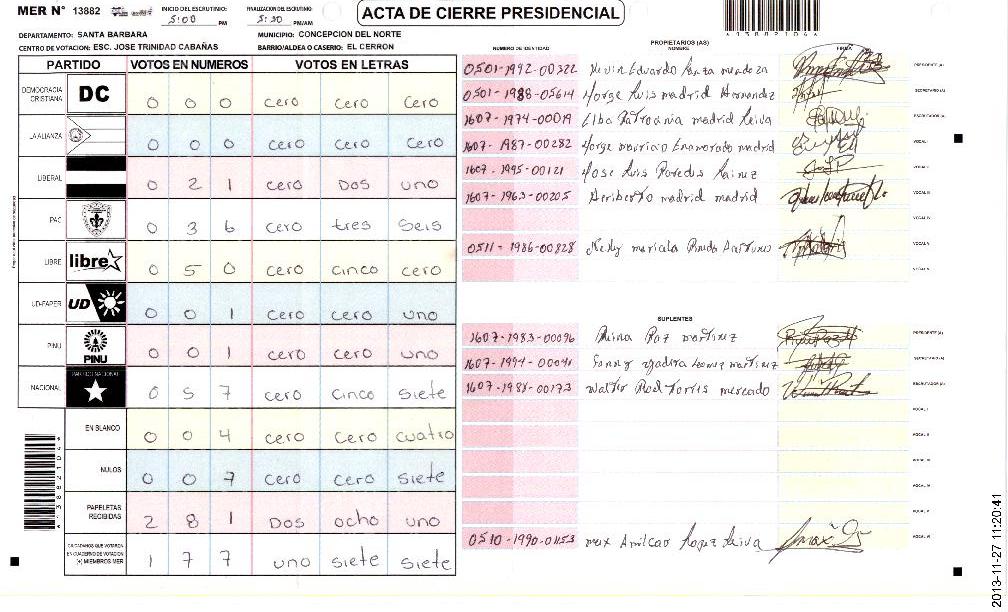 MER N° 13882 INICIO DEL ESCRUTINIO: 5:00 PM FINALIZACION DEL ESCRUTINIO: 5:30 PM/AM ACTA DE CIERRE PRESIDENCIAL
DEPARTAMENTO: SANTA BARBARA MUNICIPIO: CONCEPCION DEL NORTE
CENTRO DE VOTACION: ESC. JOSE TRINIDAD CABAÑAS BARRIO/ALDEA O CASERIO: EL CERRON
PARTIDO VOTOS EN NUMEROS VOTOS EN LETRAS
DEMOCRACIA CRISTIANA DC 0 0 0 cero cero cero
LA ALIANZA 0 0 0 cero cero cero
LIBERAL 0 2 1 cero Dos uno
PAC 0 3 6 cero tres seis
LIBRE libre 0 5 0 cero cinco cero
UD-FAPER UD 0 0 1 cero cero uno
PINU PINU 0 0 1 cero cero uno
NACIONAL PARTIDO NACIONAL 0 5 7 cero cinco siete
EN BLANCO 0 0 4 cero cero cuatro
NULOS 0 0 7 cero cero siete
PAPELETAS RECIBIDAS 2 8 1 Dos ocho uno
CIUDADANOS QUE VOTARON EN CUADERNO DE VOTACION (+) MIEMBROS MER 1 7 7 uno siete siete
PROPIETARIOS (AS)
NUMERO DE IDENTIDAD NOMBRE FIRMA
0501-1992-00322 Kevin Eduardo mendoza PRESIDENTE (A)
0501-1988-05614 Jorge Luis madrid Hernandez SECRETARIO (A)
1607-1974-00019 Elba madrid Leiva ESCRUTADOR (A)
1607-1987-00282 Jorge mauricio Enamorado madrid VOCAL I
1607-1995-00121 Jose Luis Paredes VOCAL II
1607-1963-00205 Heriberto madrid madrid VOCAL III
VOCAL IV
0511-1986-00828 maricela VOCAL V
SUPLENTES
1607-1983-00096 Reina Paz martinez PRESIDENTE (A)
1607-1994-00041 martinez SECRETARIO (A)
1607-1988-00173 Walter mercado ESCRUTADOR (A)
VOCAL I
0510-1990-01153 Amilcar Lopez Leiva
A138821044
2013-11-27 11:20:41